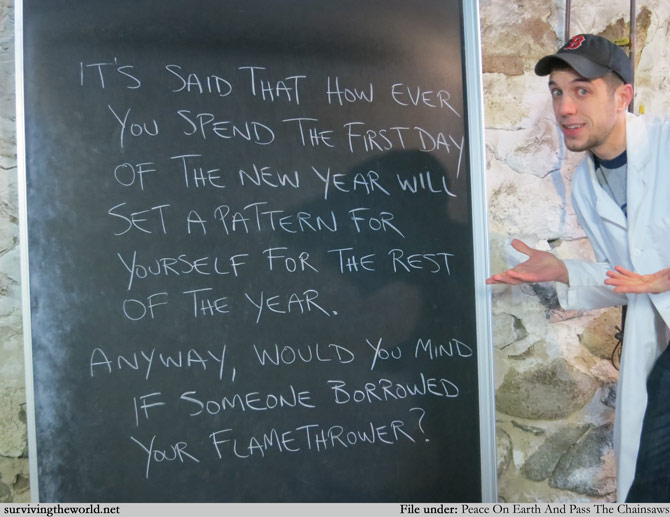 IT'S SAID THAT HOW EVER
YOU SPEND THE FIRST DAY
OF THE NEW YEAR WILL
SET A PATTERN FOR
YOURSELF FOR THE REST
OF THE YEAR.
ANYWAY, WOULD YOU MIND
IF SOMEONE BORROWED
YOUR FLAMETHROWER?
B
survivingtheworld.net
File under: Peace On Earth And Pass The Chainsaws